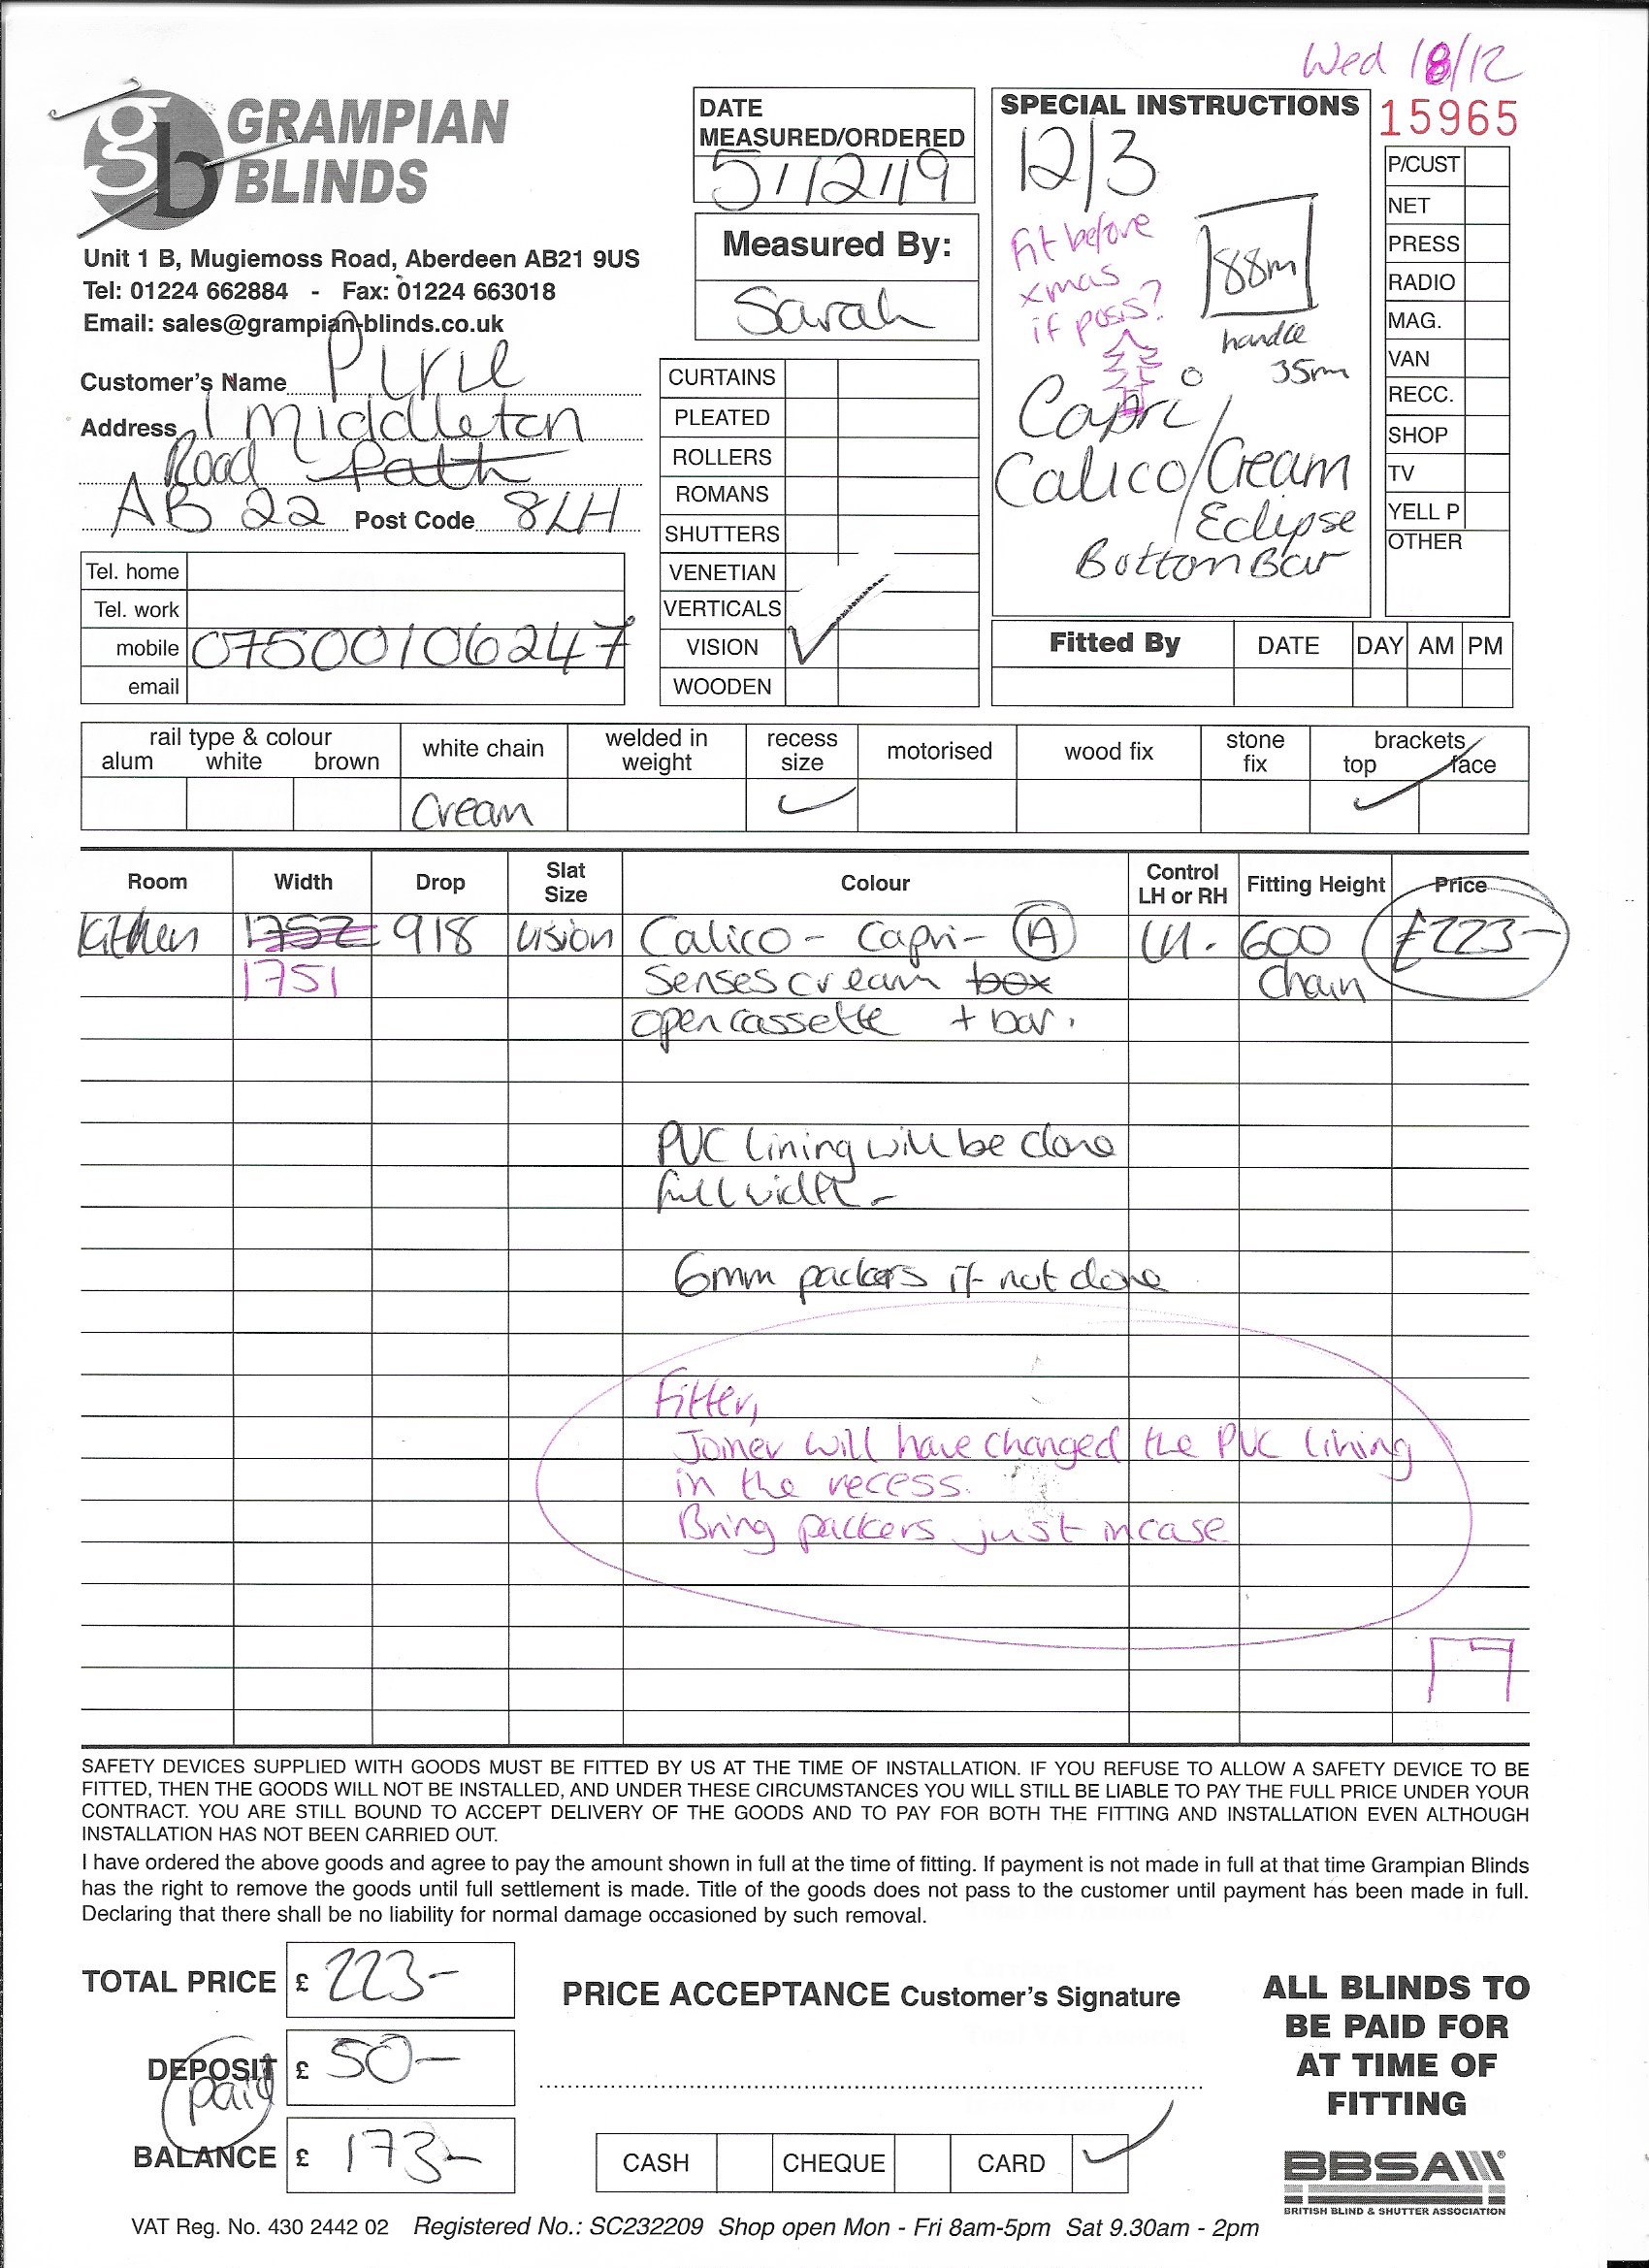 Wed 18/12
GRAMPIAN
BLINDS
Unit 1 B, Mugiemoss Road, Aberdeen AB21 9US
Tel: 01224 662884 - Fax: 01224 663018
Email: sales@grampian-blinds.co.uk
Customer's Name Pirie
Address 1 Middleton
Road Path
AB 22 Post Code 8LH
Tel. home
Tel. work
mobile 07500106247
email
DATE
MEASURED/ORDERED
5/12/19
Measured By:
Sarah
CURTAINS
PLEATED
ROLLERS
ROMANS
SHUTTERS
VENETIAN
VERTICALS
VISION
WOODEN
SPECIAL INSTRUCTIONS
12/3
Fit before
xmas
if poss?
88m
handle
35m
Capri/
Calico/Cream
Eclipse
Bottom Bar
15965
P/CUST
NET
PRESS
RADIO
MAG.
VAN
RECC.
SHOP
TV
YELL P
OTHER
Fitted By DATE DAY AM PM
rail type & colour
alum white brown
white chain
welded in
weight
recess
size
motorised
wood fix
stone
fix
brackets
top face
Cream
Room Width Drop Slat Size Colour Control LH or RH Fitting Height Price
Kitchen 1752 918 Vision Calico - Capri - A LH. 600 £223-
1751 Senses cream box Chain
open cassette + bar.
PVC lining will be done
full width -
6mm packers if not done
Fitter,
Joiner will have changed the PVC lining
in the recess.
Bring packers just incase
SAFETY DEVICES SUPPLIED WITH GOODS MUST BE FITTED BY US AT THE TIME OF INSTALLATION. IF YOU REFUSE TO ALLOW A SAFETY DEVICE TO BE
FITTED, THEN THE GOODS WILL NOT BE INSTALLED, AND UNDER THESE CIRCUMSTANCES YOU WILL STILL BE LIABLE TO PAY THE FULL PRICE UNDER YOUR
CONTRACT. YOU ARE STILL BOUND TO ACCEPT DELIVERY OF THE GOODS AND TO PAY FOR BOTH THE FITTING AND INSTALLATION EVEN ALTHOUGH
INSTALLATION HAS NOT BEEN CARRIED OUT.
I have ordered the above goods and agree to pay the amount shown in full at the time of fitting. If payment is not made in full at that time Grampian Blinds
has the right to remove the goods until full settlement is made. Title of the goods does not pass to the customer until payment has been made in full.
Declaring that there shall be no liability for normal damage occasioned by such removal.
TOTAL PRICE £ 223-
DEPOSIT £ 50-
paid
BALANCE £ 173-
PRICE ACCEPTANCE Customer's Signature
CASH CHEQUE CARD
ALL BLINDS TO
BE PAID FOR
AT TIME OF
FITTING
BBSA
BRITISH BLIND & SHUTTER ASSOCIATION
VAT Reg. No. 430 2442 02 Registered No.: SC232209 Shop open Mon - Fri 8am-5pm Sat 9.30am - 2pm